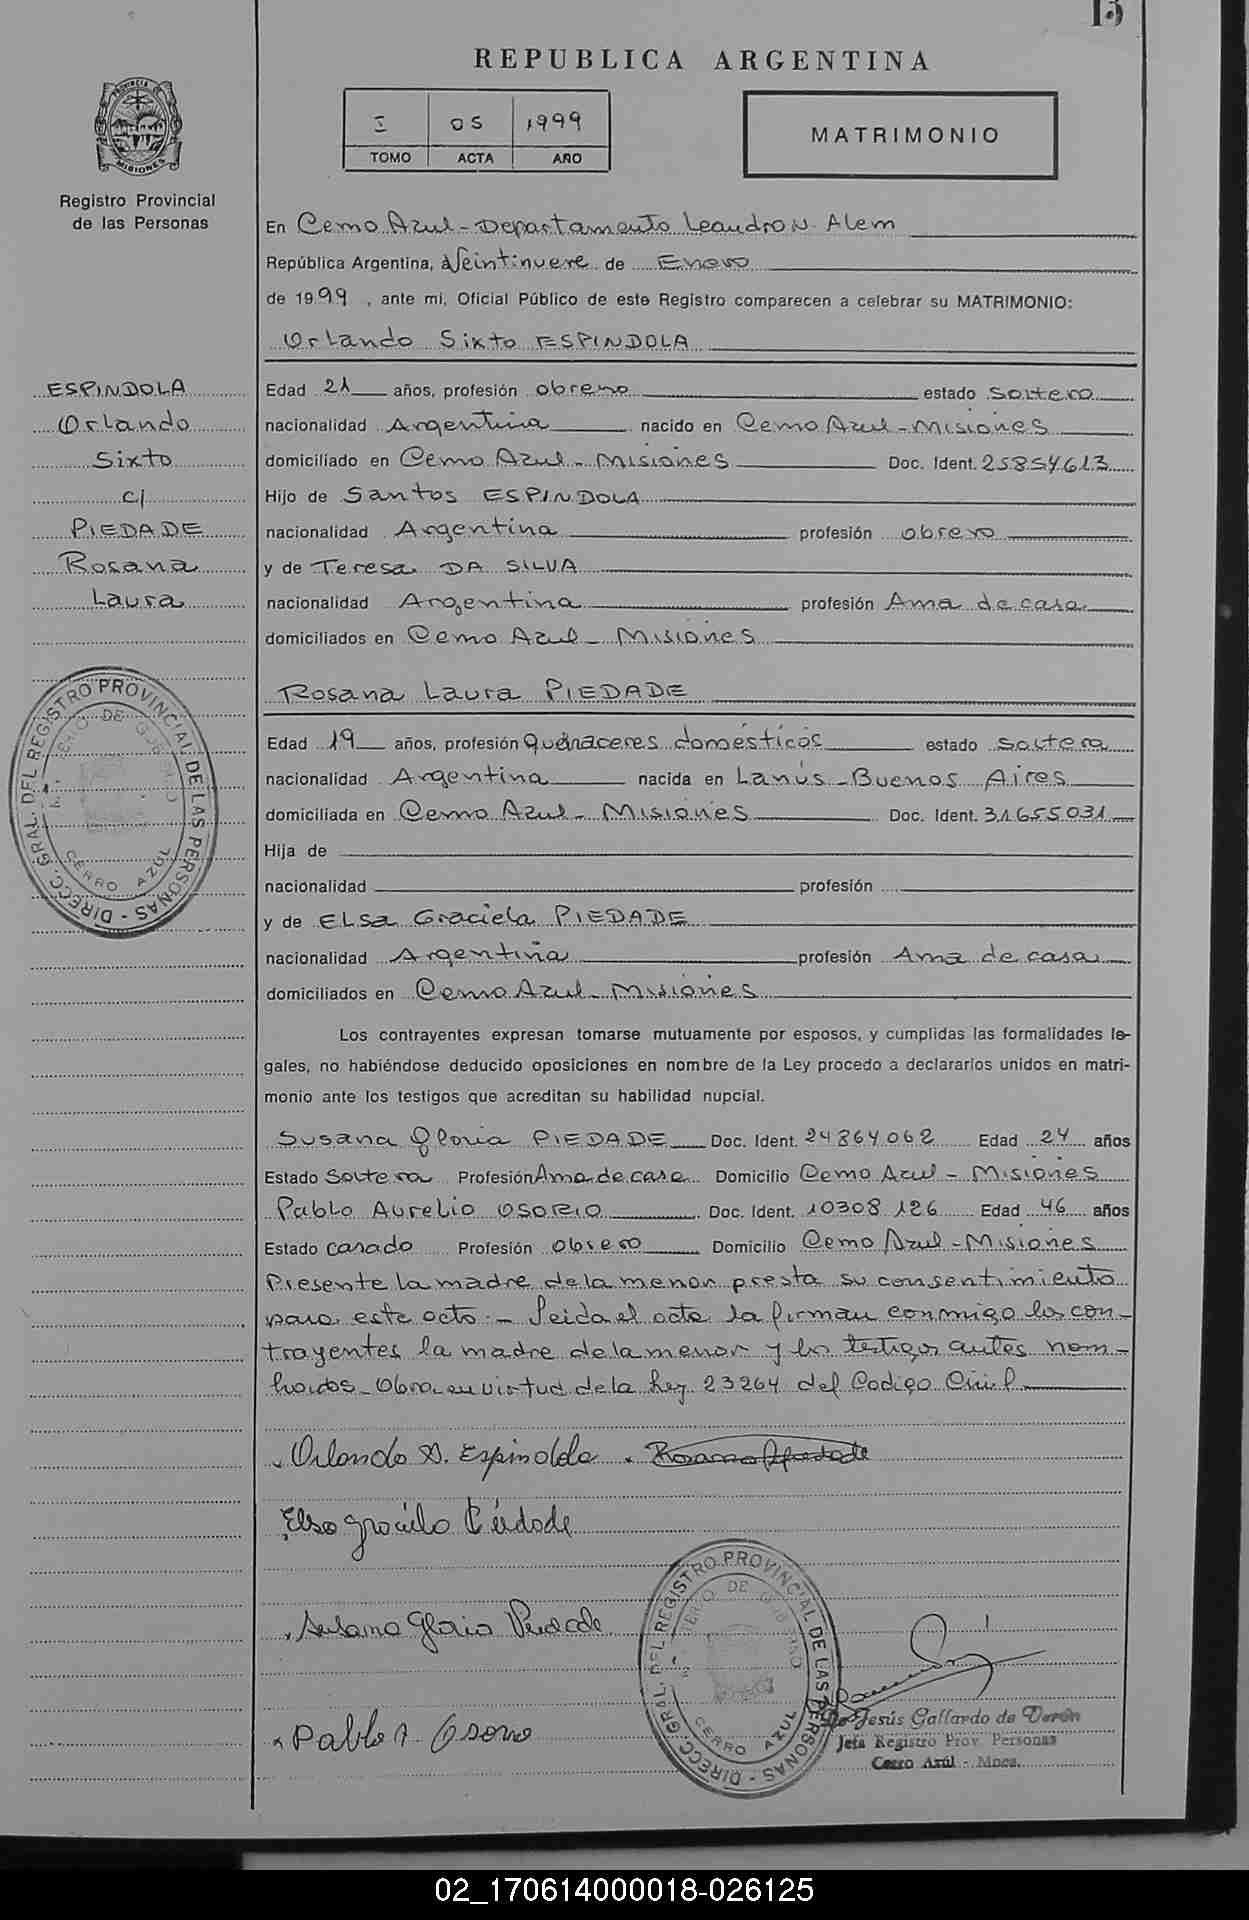 13
REPUBLICA ARGENTINA
I 05 1999
TOMO ACTA AÑO
MATRIMONIO
PROVINCIA DE MISIONES
Registro Provincial
de las Personas
En Cerro Azul - Departamento Leandro N. Alem
República Argentina, Veintinueve de Enero
de 1999, ante mi, Oficial Público de este Registro comparecen a celebrar su MATRIMONIO:
Orlando Sixto ESPINDOLA
ESPINDOLA
Orlando
Sixto
c/
PIEDADE
Rosana
Laura
Edad 21 años, profesión obrero estado soltero
nacionalidad Argentina nacido en Cerro Azul - Misiones
domiciliado en Cerro Azul - Misiones Doc. Ident. 25854613
Hijo de Santos ESPINDOLA
nacionalidad Argentina profesión obrero
y de Teresa DA SILVA
nacionalidad Argentina profesión Ama de casa
domiciliados en Cerro Azul - Misiones
Rosana Laura PIEDADE
Edad 19 años, profesión Quehaceres domésticos estado soltera
nacionalidad Argentina nacida en Lanús - Buenos Aires
domiciliada en Cerro Azul - Misiones Doc. Ident. 31655031
Hija de
nacionalidad profesión
y de Elsa Graciela PIEDADE
nacionalidad Argentina profesión Ama de casa
domiciliados en Cerro Azul - Misiones
DIRECC. GRAL. DEL REGISTRO PROVINCIAL DE LAS PERSONAS -
CERRO AZUL
Los contrayentes expresan tomarse mutuamente por esposos, y cumplidas las formalidades le-
gales, no habiéndose deducido oposiciones en nombre de la Ley procedo a declararlos unidos en matri-
monio ante los testigos que acreditan su habilidad nupcial.
Susana Gloria PIEDADE Doc. Ident. 24864062 Edad 24 años
Estado Soltera Profesión Ama de casa Domicilio Cerro Azul - Misiones
Pablo Aurelio OSORIO Doc. Ident. 10308126 Edad 46 años
Estado casado Profesión obrero Domicilio Cerro Azul - Misiones
Presente la madre de la menor presta su consentimiento
para este acto.- Leida el acta la firman conmigo los con-
trayentes la madre de la menor y los testigos antes nom-
brados - Obra en virtud de la Ley 23264 del Codigo Civil
Orlando S. Espindola Rosana Piedade
Elsa Graciela Piedade
Susana Gloria Piedade
Pablo A. Osorio
DIRECC. GRAL. DEL REGISTRO PROVINCIAL DE LAS PERSONAS -
CERRO AZUL
de Jesús Gallardo de Verón
Jefa Registro Prov. Personas
Cerro Azúl - Mnes.
02_170614000018-026125